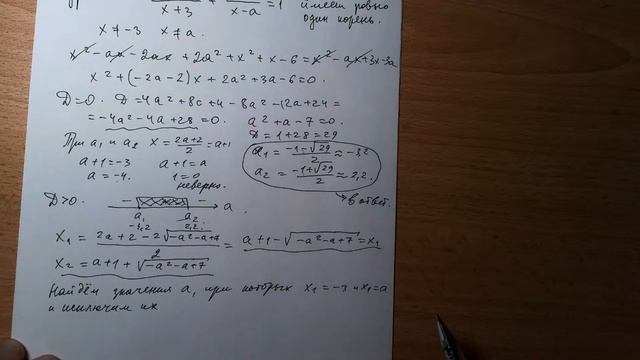 x+3 x-a =1 имеет ровно
один корень.
x ≠ -3 x ≠ a.
x² - ax - 2ax + 2a² + x² + x - 6 = x² - ax + 3x - 3a
x² + (-2a-2)x + 2a² + 3a - 6 = 0.
D=0. D = 4a² + 8a + 4 - 8a² - 12a + 24 =
= -4a² - 4a + 28 = 0. a² + a - 7 = 0.
D = 1 + 28 = 29
При a₁ и a₂ x = (2a+2)/2 = a+1
a₁ = (-1-√29)/2 ≈ -3,2
a+1 = -3 a+1 = a
a = -4. 1 = 0 неверно.
a₂ = (-1+√29)/2 ≈ 2,2.
в ответ.
D>0. - - a.
a₁ a₂
-3,2 2,2
x₁ = (2a+2-2√(-a²-a+7))/2 = a+1-√(-a²-a+7) = x₁
x₂ = a+1+√(-a²-a+7)
Найдём значения a, при которых x₁ = -3 и x₁ = a
и исключим их